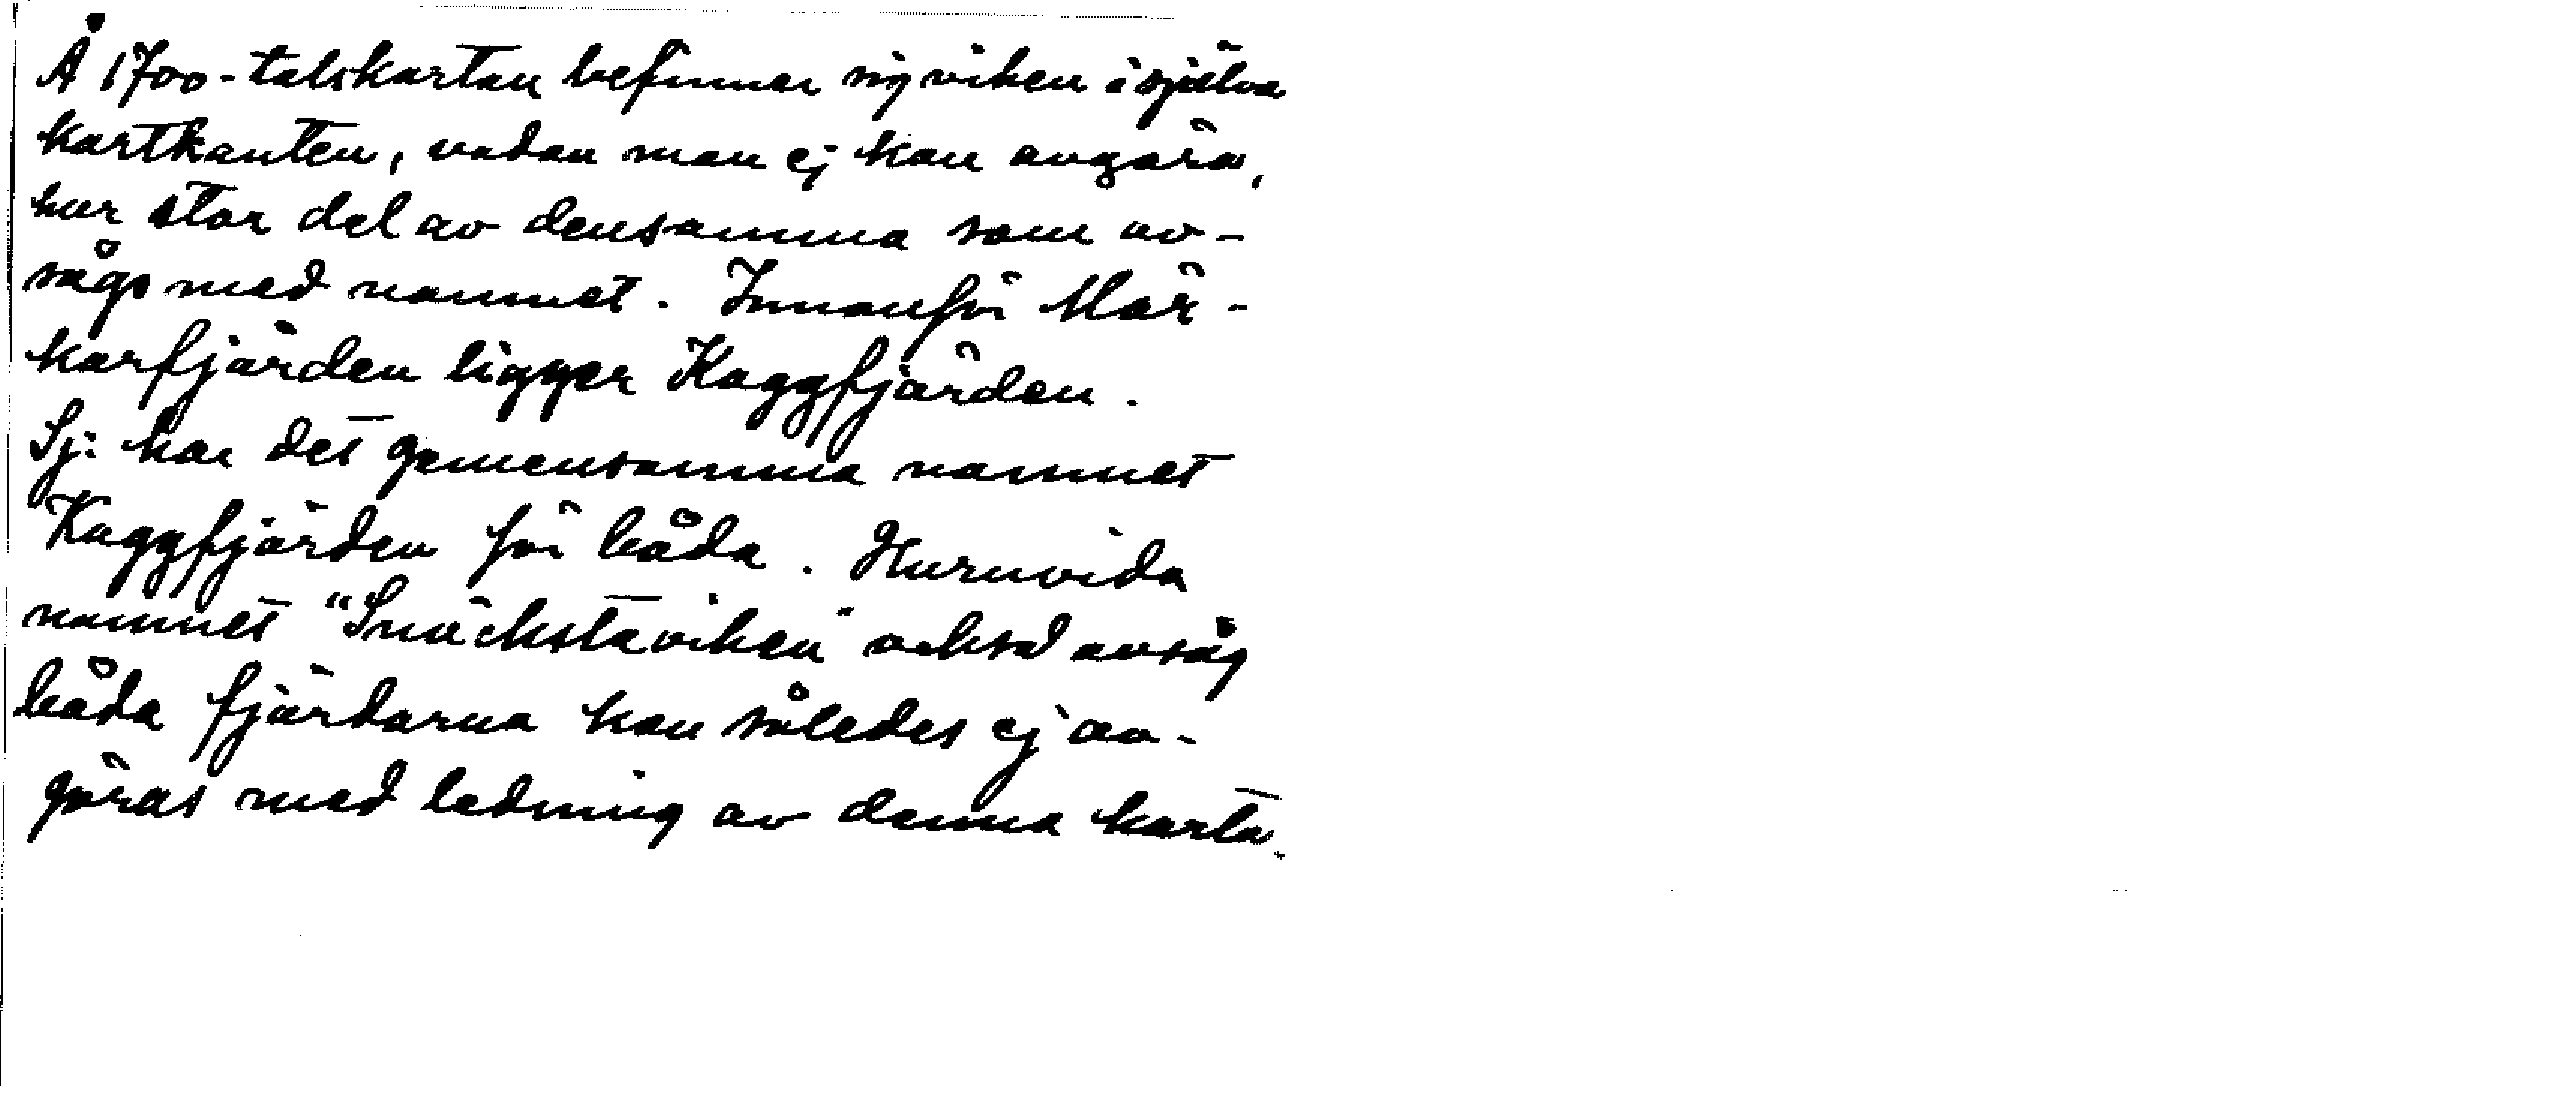 Å 1700-talskartan befinner sig viken i själva
kartkanten, vadan man ej kan avgöra,
hur stor del av densamma som av-
sågs med namnet. Innanför Mör-
karfjärden ligger Kaggfjärden.
Sj: har det gemensamma namnet
Kaggfjärden för båda. Huruvida
namnet "Snäckstaviken" också avsåg
båda fjärdarna kan således ej av-
göras med ledning av denna karta.